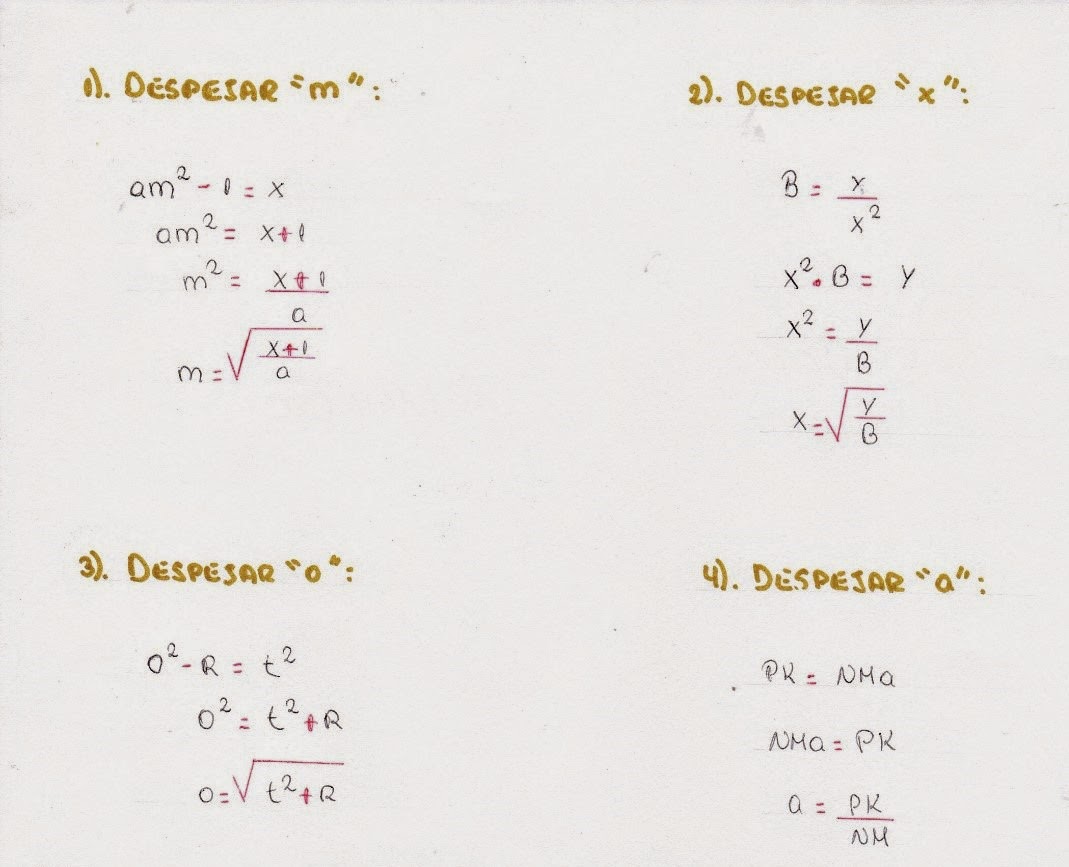 1). DESPEJAR "m":
am² - 1 = x
am² = x+1
m² = x+1/a
m = √x+1/a
2). DESPEJAR "x":
B = y/x²
x² • B = y
x² = y/B
x = √y/B
3). DESPEJAR "o":
o² - R = t²
o² = t² + R
o = √t² + R
4). DESPEJAR "a":
PK = NMa
NMa = PK
a = PK/NM